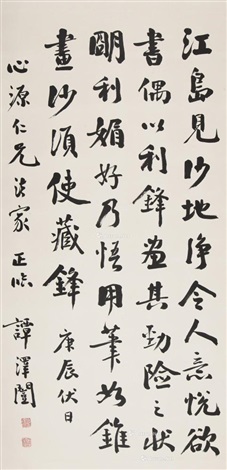 江島見沙地淨令人意悅欲
書偶以利鋒畫其勁險之狀
明利媚好乃悟用筆如錐
畫沙須使藏鋒 庚辰伏日
心源仁兄法家正临
譚澤闓